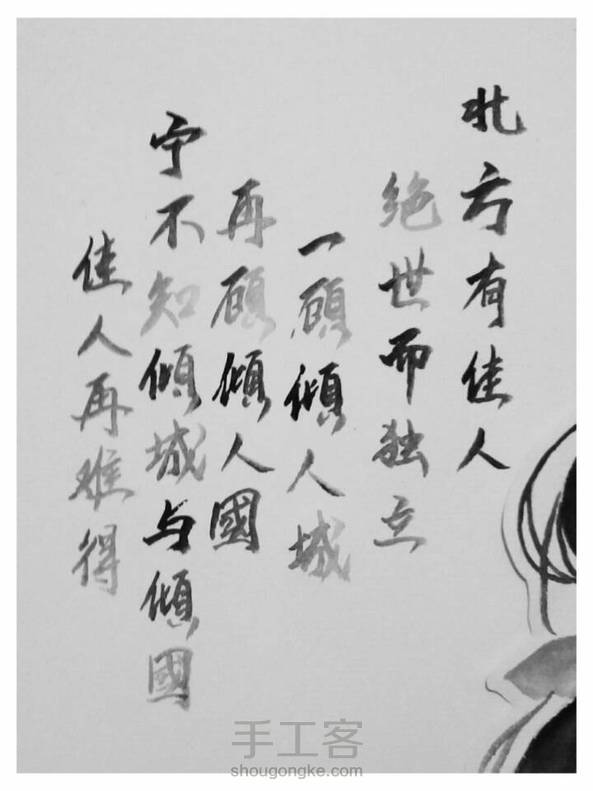 北方有佳人
绝世而独立
一顾倾人城
再顾傾人國
宁不知傾城与傾國
佳人再难得
手工客
shougongke.com